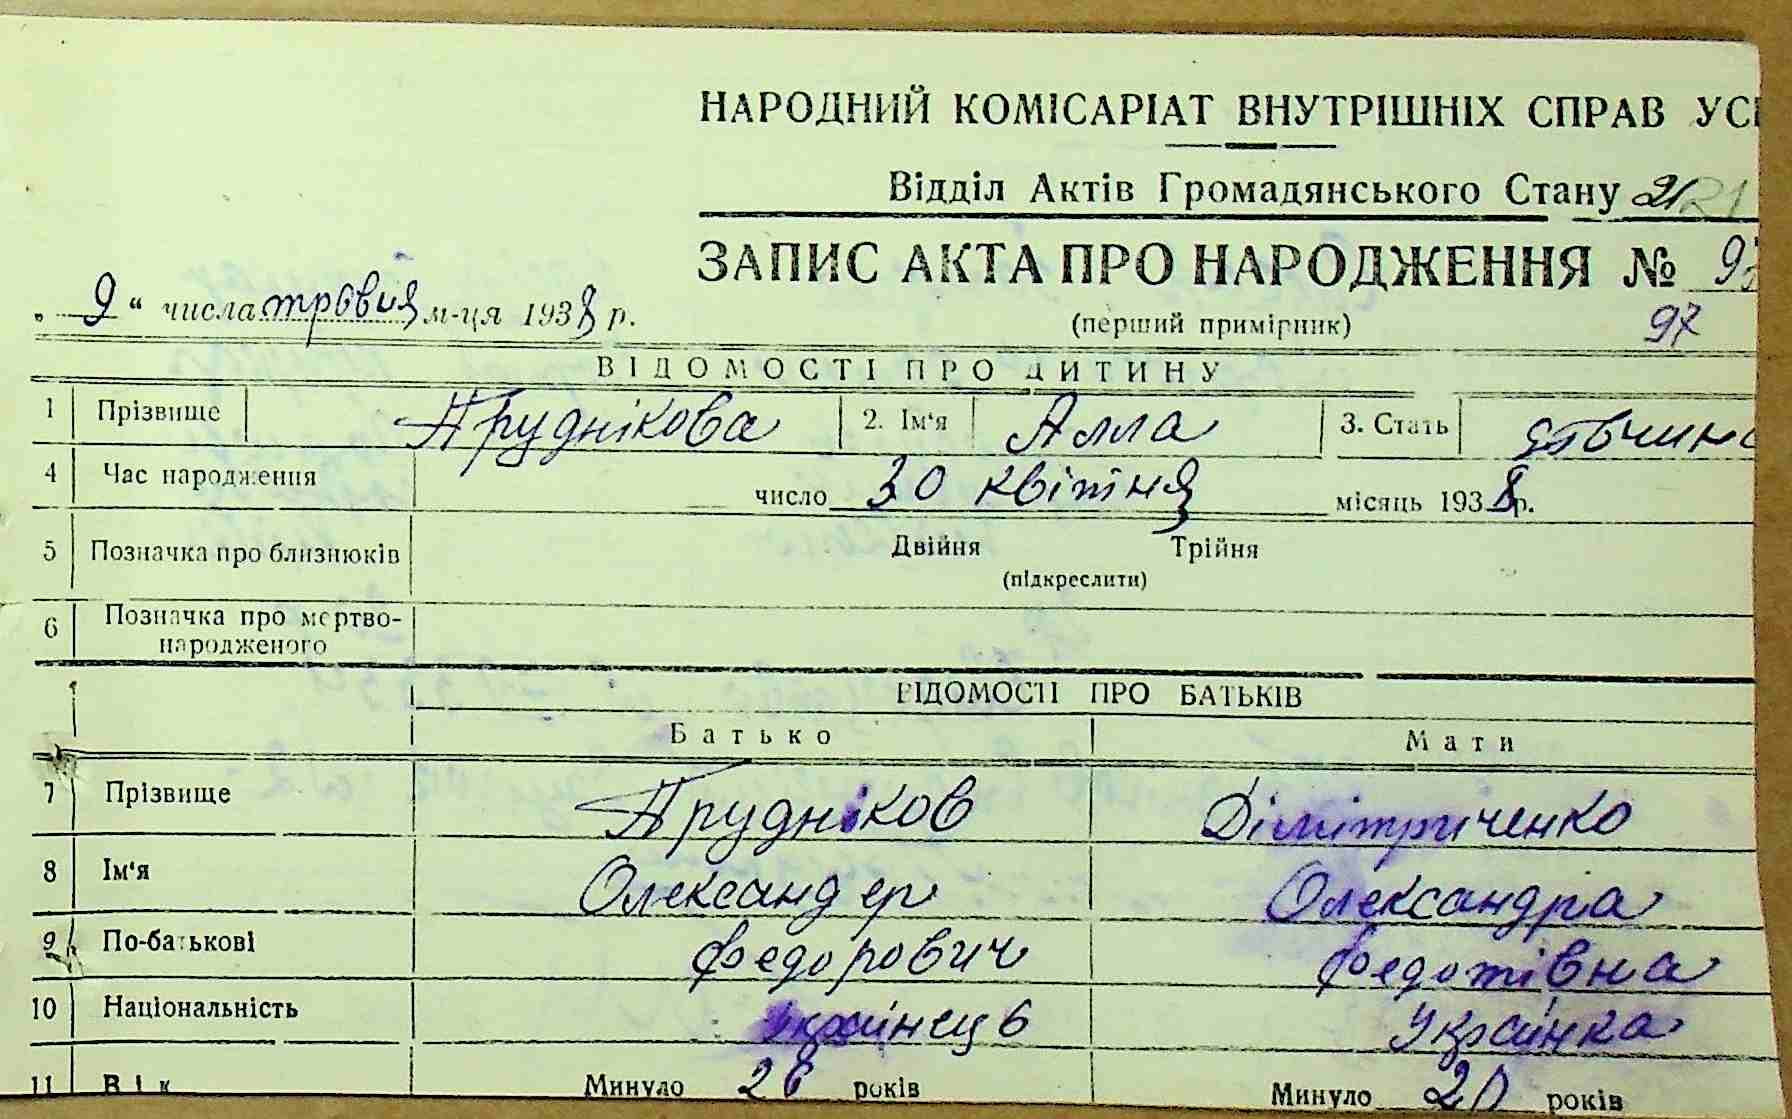 НАРОДНИЙ КОМІСАРІАТ ВНУТРІШНІХ СПРАВ
Відділ Актів Громадянського Стану
ЗАПИС АКТА ПРО НАРОДЖЕННЯ №
„ 9 “ числа травня м-ця 1938 р. (перший примірник) 97
ВІДОМОСТІ ПРО ДИТИНУ
1 Прізвище Пруднікова 2. Ім'я Алла 3. Стать
4 Час народження число 30 квітня місяць 1938 р.
5 Позначка про близнюків Двійня Трійня
(підкреслити)
6 Позначка про мертво-
народженого
ВІДОМОСТІ ПРО БАТЬКІВ
Батько Мати
7 Прізвище Прудніков Дімітриченко
8 Ім'я Олександер Олександра
9 По-батькові Федорович Федотівна
10 Національність Українець Українка
11 Вік Минуло років Минуло років